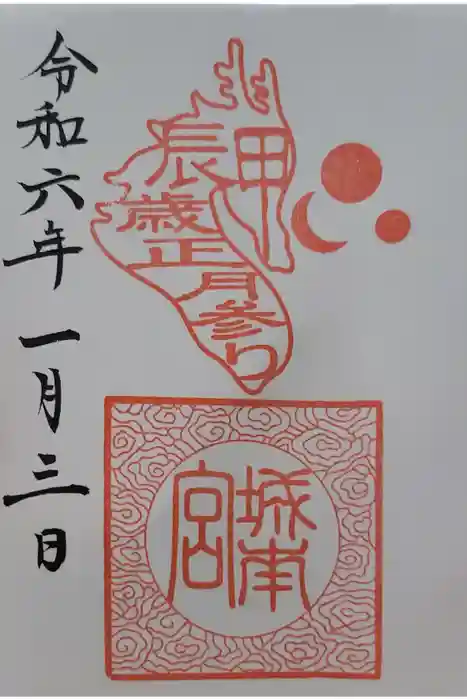 甲
辰
歳
正
月
参
り
城南
宮
令和六年一月三日